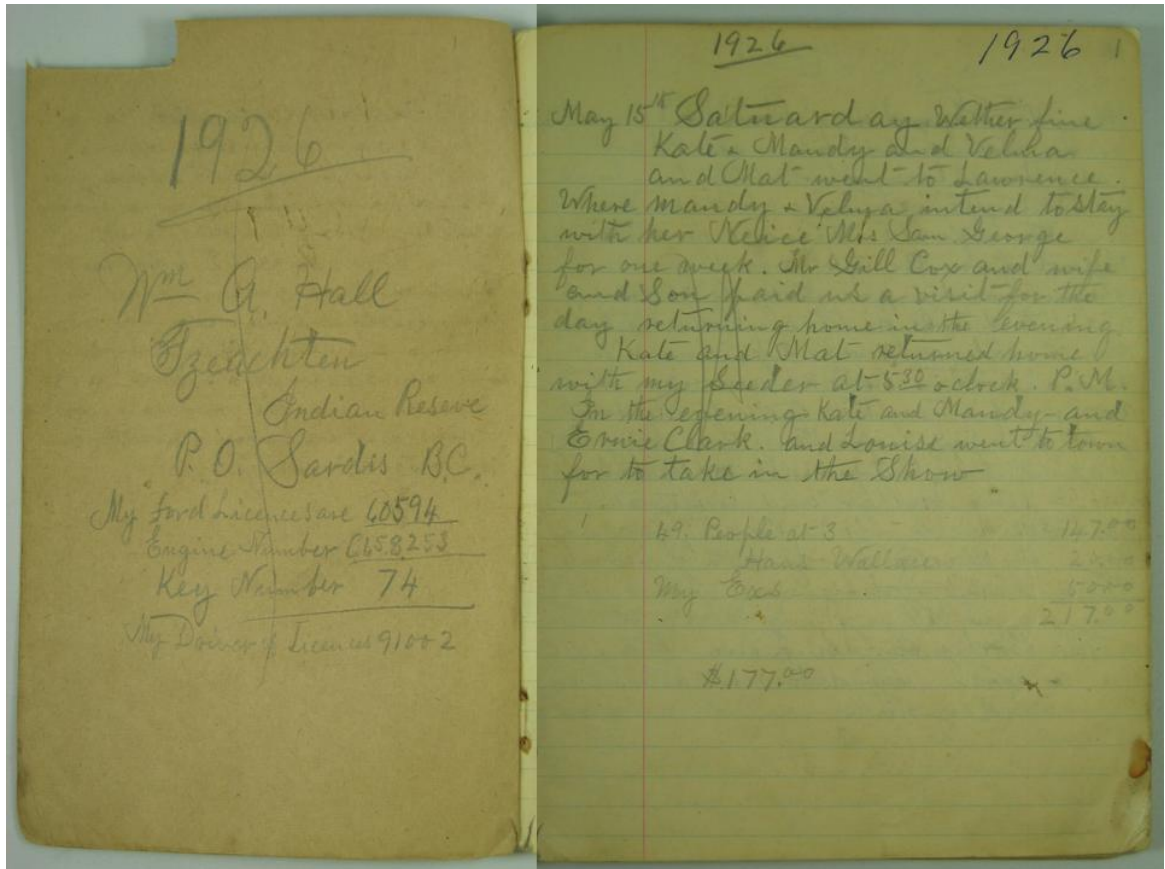 1926
Wm A. Hall
Tzeachten
Indian Reserve
P.O. Sardis B.C.
My Ford Licences are 60594
Engine Number
Key Number 74
My Driver Licences 91002
1926 1926 1
May 15th Satuarday Wether fine
Kate & Mandy and Velma
and Mat went to Lawrence.
Where Mandy & Velma intend to stay
with her Neice Mrs Sam George
for one week. Mr Gill Cox and wife
and Son paid us a visit for the
day returning home in the evening
Kate and Mat returned home
with my Seeder at 530 oclock. P.M.
In the evening Kate and Mandy and
Ernie Clark. and Louise went to town
for to take in the Show
49. People at 3 147.00
Wallace
My 50.00
217.00
$177.00